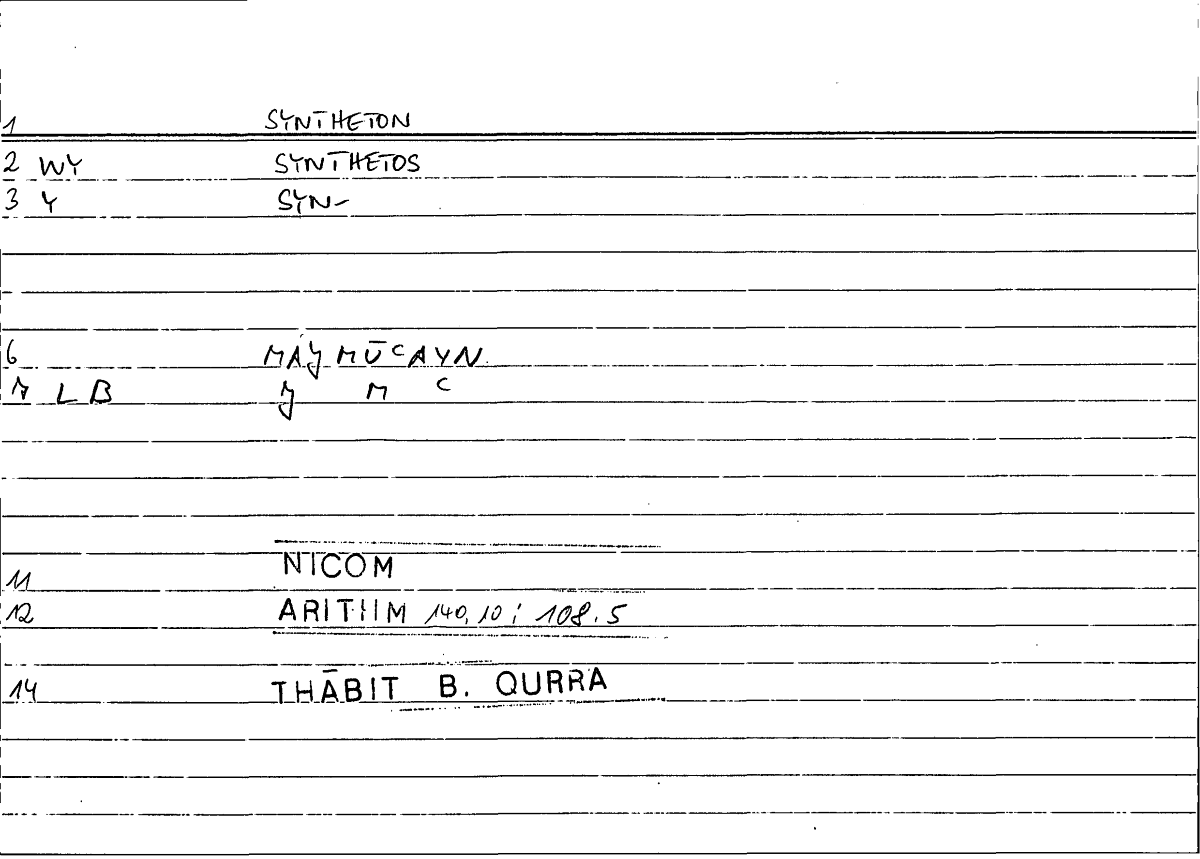 1 SYNTHETON
2 WY SYNTHETOS
3 Y SYN-
6 MAǦMŪCAYN
7 LB Ǧ M C
11 NICOM
12 ARITHM 140,10; 108.5
14 THĀBIT B. QURRA